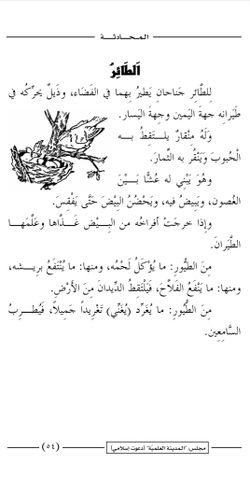 المحادثة
اَلطَّائِرُ
لِلطَّائِرِ جَنَاحَانِ يَطِيرُ بِهِمَا فِي الفَضَاءِ، وَذَيلٌ يحَرِّكُه فِي
طَيَرَانِهِ جهةَ اليَمينِ وجهةَ اليَسَارِ.
وَلَهُ مِنْقَارٌ يلْتَقِطُ بِه
الحُبوبَ وَيَنْقُر بِهِ الثمارَ.
وهُوَ يَبْنِي لَه عُشًّا بَيْنَ
الغصونِ، وَيَبيضُ فِيه، وَيَحْضُنُ البيْضَ حَتَّى يَفْقِسَ.
وَإِذا خرجَتْ أَفراخُه من البِيْضِ غَذَّاهَا وعَلَّمَها
الطَّيرَانَ.
مِنَ الطُّيورِ: ما يُؤْكَلُ لَحْمُه، ومنها: مَا يُنْتَفَعُ بريشه،
ومنها: مَا يَنْفَعُ الفَلاَّحَ، فَيَلْتَقِطُ الدِّيدَانَ مِنَ الأَرْضِ.
مِنَ الطُّيورِ: مَا يُغَرِّد (يُغَنِّي) تَغْريداً جَميلاً، فَيُطْرِبُ
السَّامِعِين.
مجلس: "المدينة العلمية" (دعوت إسلامي)
(٥٤)